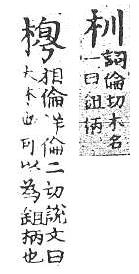 杊
詞倫切木名
一曰鉏柄
相倫詳倫二切說文曰
大木也可以為鉏柄也